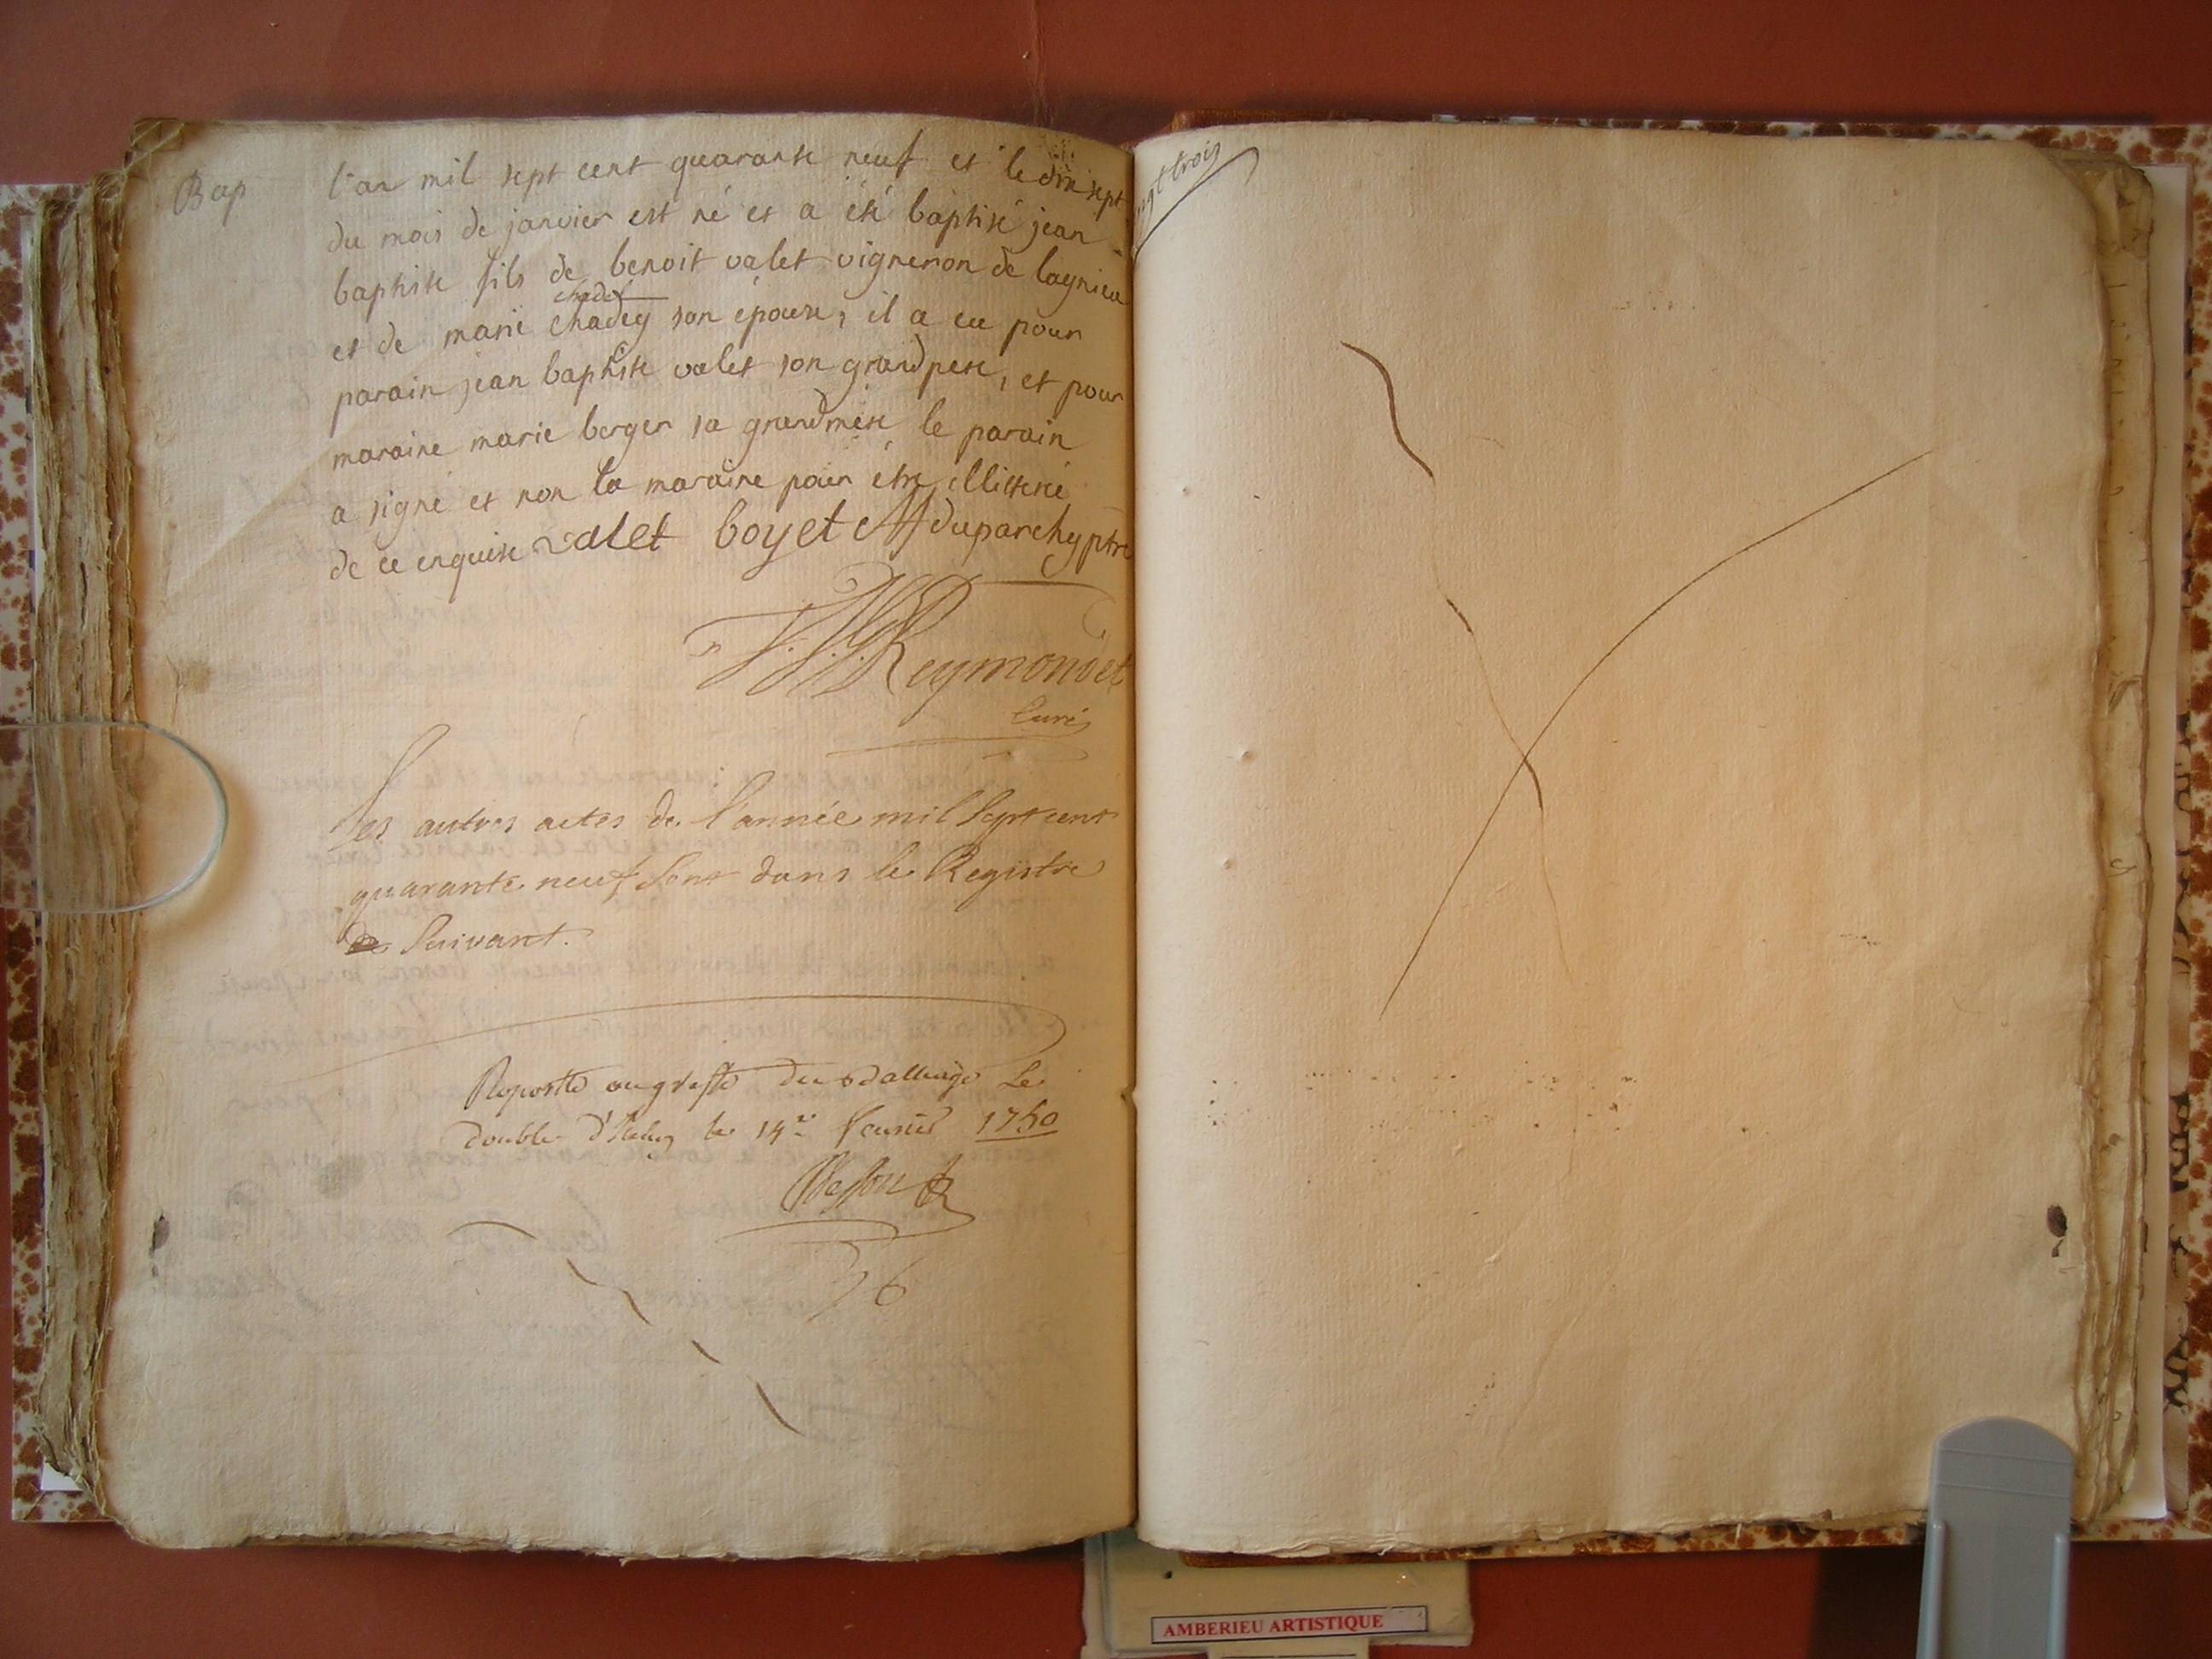 Bap
l'an mil sept cent quarante neuf et le dix sept
du mois de janvier est né et a été baptisé jean
baptiste fils de benoit valet vigneron de lagnieu
chadef
et de marie chadey son épouse, il a eu pour
parain jean baptiste valet son grandpere, et pour
maraine marie berger sa grandmere le parain
a signé et non la maraine pour être illitteré
de ce enquise valet boyet duparchy ptre
Reymondet
Curé
Les autres actes de l'année mil sept cent
quarante neuf sont dans le Registre
de Suivant.
Raporté au greffe du Bailliage Le
double le 14 fevrier 1750
gt trois
AMBERIEU ARTISTIQUE